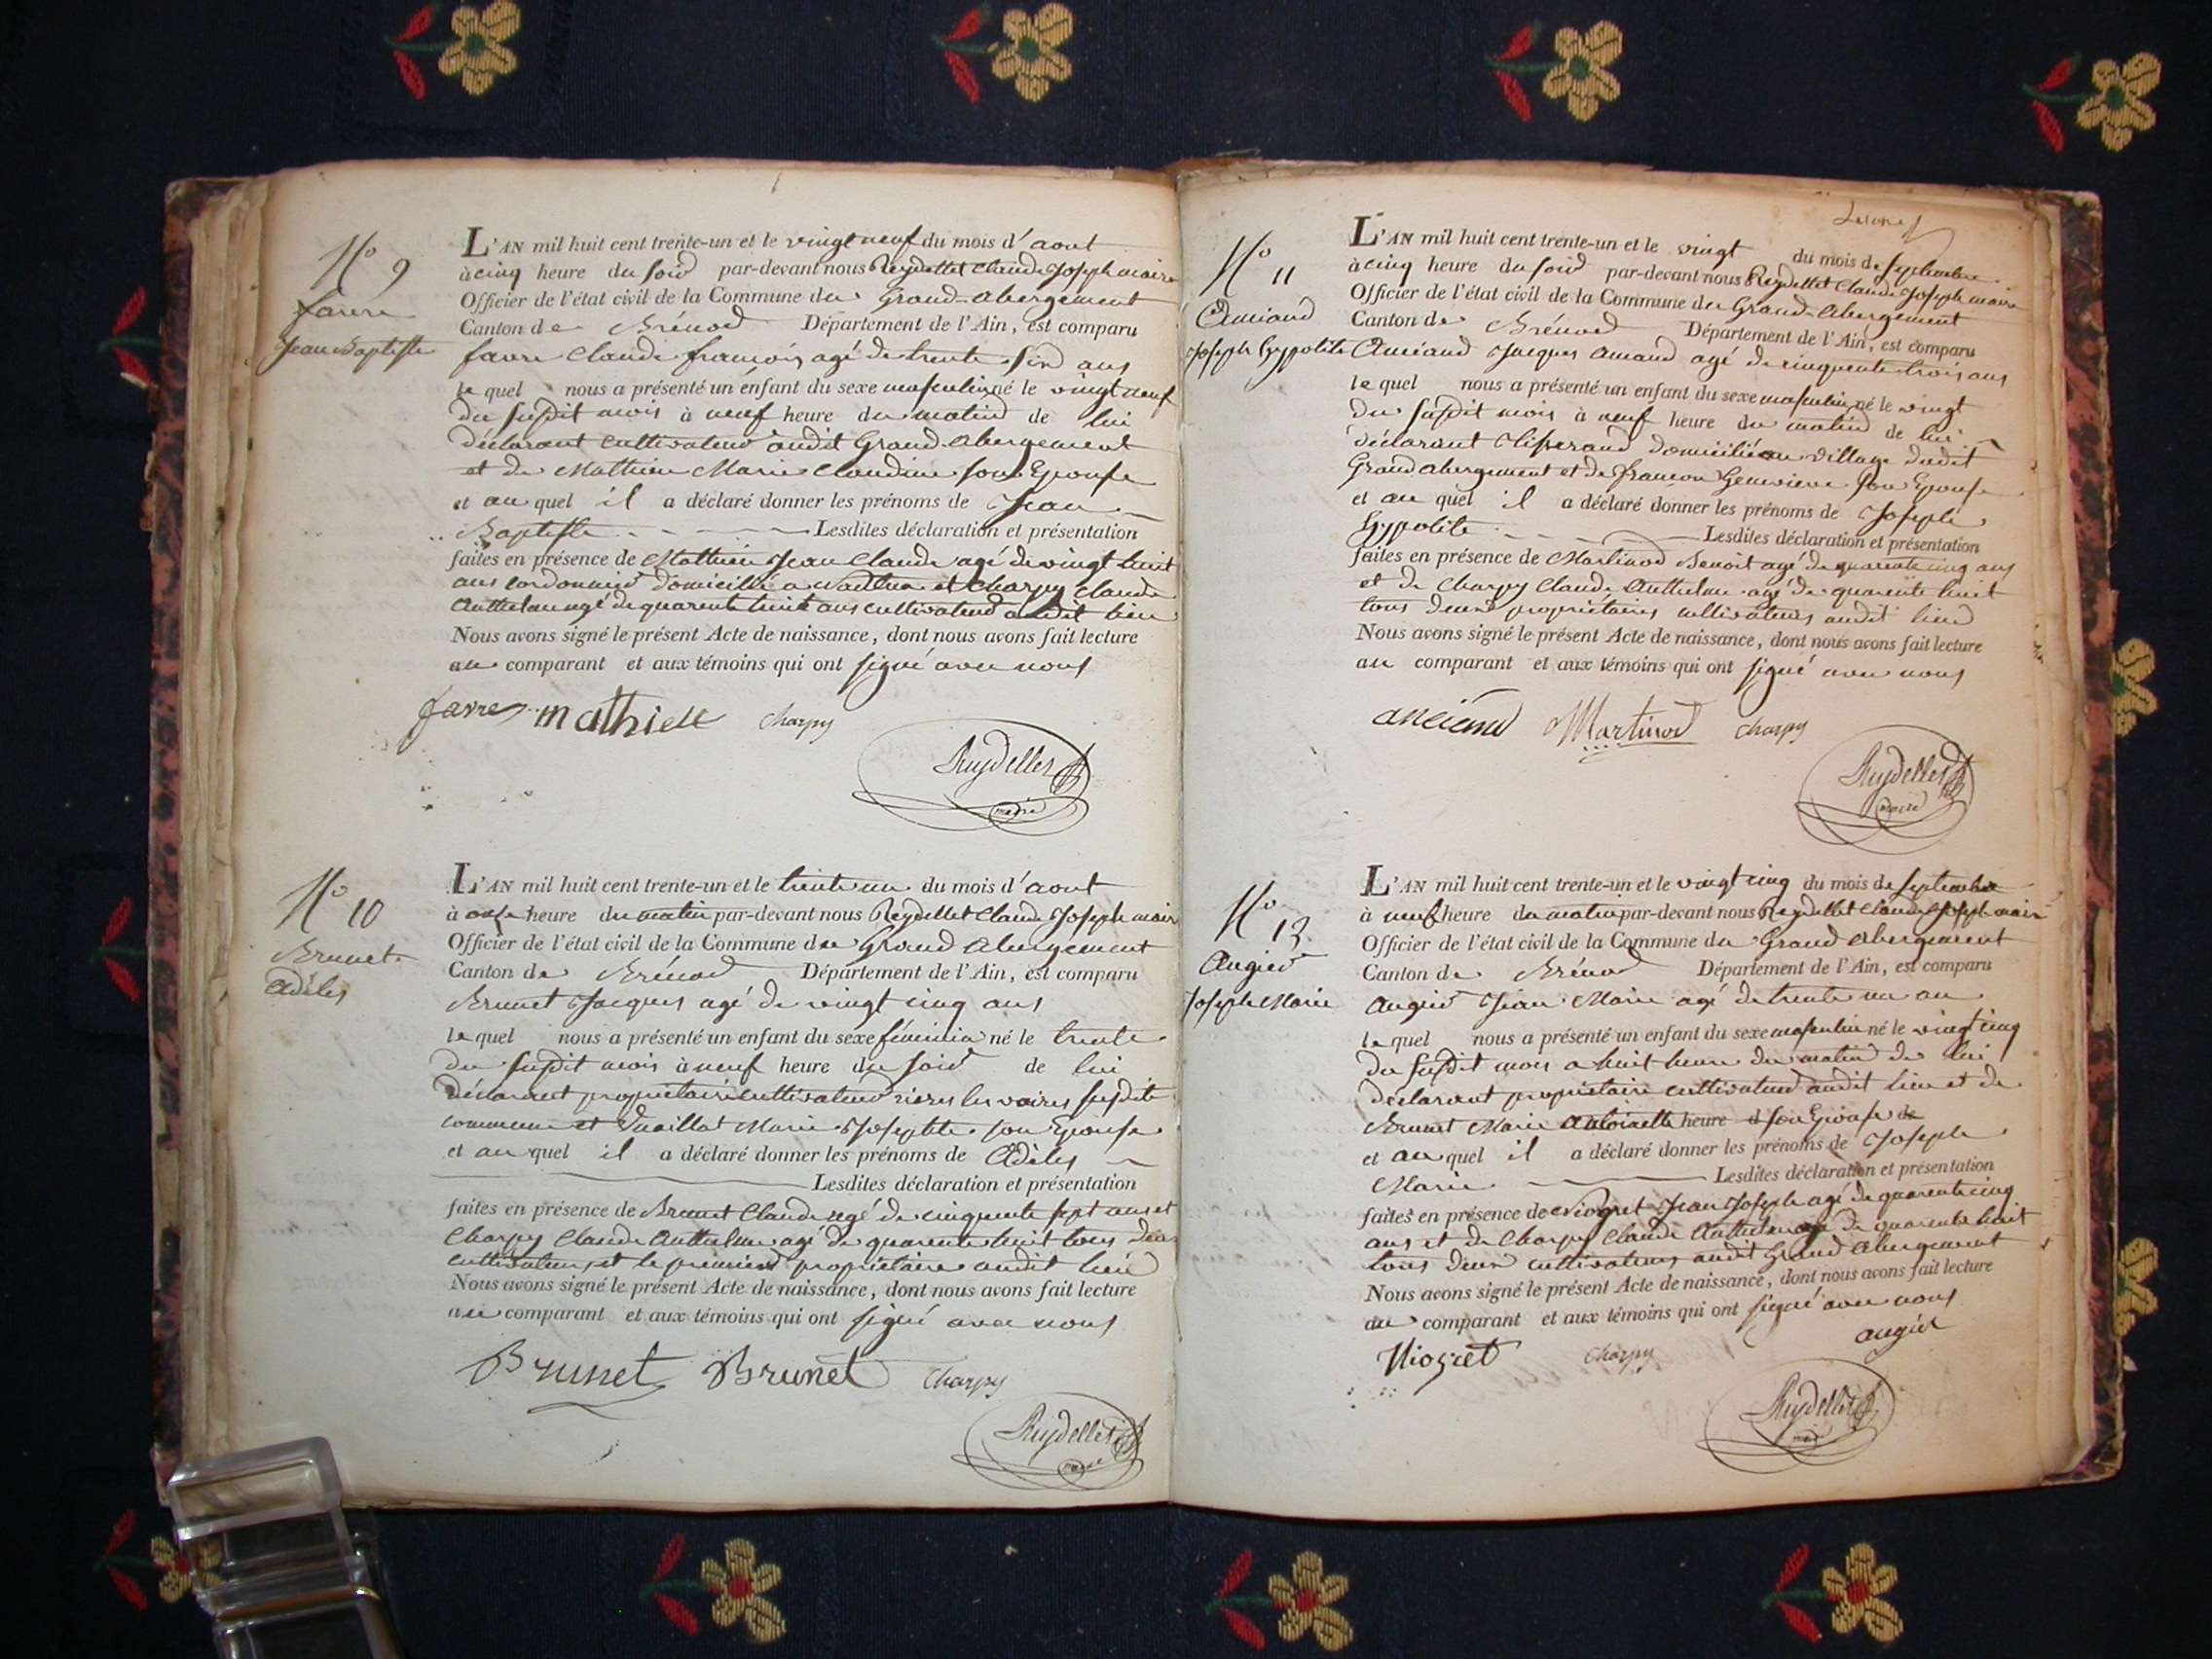 N° 9
favre
Jean Baptiste
L'AN mil huit cent trente-un et le vingt neuf du mois d'aout
à cinq heure du soir par-devant nous Reydellet Claude Joseph maire
Officier de l'état civil de la Commune du Grand-abergement
Canton de Brénod Département de l'Ain, est comparu
favre Claude françois agé de trente six ans
le quel nous a présenté un enfant du sexe masculin né le vingt neuf
du susdit mois à neuf heure du matin de lui
déclarant cultivateur audit Grand-abergement
et de Mathieu Marie Claudine son Epouse
et au quel il a déclaré donner les prénoms de Jean
Baptiste Lesdites déclaration et présentation
faites en présence de Mathieu Jean Claude agé de vingt huit
ans cordonnier domicilié a et Charpy Claude
Anthelme agé de quarente huit ans cultivateur audit lieu
Nous avons signé le présent Acte de naissance, dont nous avons fait lecture
au comparant et aux témoins qui ont signé avec nous
favre mathieu Charpy
Reydellet
maire
N° 10
Brunet
Adèles
L'AN mil huit cent trente-un et le trente un du mois d'aout
à onze heure du matin par-devant nous Reydellet Claude Joseph maire
Officier de l'état civil de la Commune du Grand abergement
Canton de Brénod Département de l'Ain, est comparu
Brunet Jacques agé de vingt cinq ans
le quel nous a présenté un enfant du sexe féminin né le trente
du susdit mois à neuf heure du soir de lui
déclarant propriétaire cultivateur susdite
commune et Marie Josephte son Epouse
et au quel il a déclaré donner les prénoms de Adèles
Lesdites déclaration et présentation
faites en présence de Brunet Claude agé de cinquente sept ans et
Charpy Claude Anthelme agé de quarente huit tous deux
cultivateurs et le premier propriétaire audit lieu
Nous avons signé le présent Acte de naissance, dont nous avons fait lecture
au comparant et aux témoins qui ont signé avec nous
Brunet Brunet Charpy
Reydellet
maire
N° 11
Anciand
Joseph hyppolite
L'AN mil huit cent trente-un et le vingt du mois de septembre
à cinq heure du soir par-devant nous Reydellet Claude Joseph maire
Officier de l'état civil de la Commune du Grand-Abergement
Canton de Brénod Département de l'Ain, est comparu
Anciand Jacques Amand agé de cinquente trois ans
le quel nous a présenté un enfant du sexe masculin né le vingt
du susdit mois à neuf heure du matin de lui
déclarant tisserand domicilié au village dudit
Grand abergement et de Genevieve son Epouse
et au quel il a déclaré donner les prénoms de Joseph
hyppolite Lesdites déclaration et présentation
faites en présence de Martinod Benoit agé de quarente cinq ans
et de Charpy Claude Anthelme agé de quarente huit
tous deux propriétaires cultivateurs audit lieu
Nous avons signé le présent Acte de naissance, dont nous avons fait lecture
au comparant et aux témoins qui ont signé avec nous
anciand Martinod Charpy
Reydellet
maire
N° 12
Augier
Joseph Marie
L'AN mil huit cent trente-un et le vingt cinq du mois de septembre
à neuf heure du matin par-devant nous Reydellet Claude Joseph maire
Officier de l'état civil de la Commune du Grand abergement
Canton de Brénod Département de l'Ain, est comparu
Augier Jean Marie agé de trente un an
le quel nous a présenté un enfant du sexe masculin né le vingt cinq
du susdit mois a huit heure du matin de lui
déclarant propriétaire cultivateur audit lieu et de
Brunet Marie Antoinette heure d son Epouse de
et au quel il a déclaré donner les prénoms de Joseph
Marie Lesdites déclaration et présentation
faites en présence de Niogret Jean Joseph agé de quarente cinq
ans et de Charpy Claude Anthelme agé de quarente huit
tous deux cultivateurs audit Grand Abergement
Nous avons signé le présent Acte de naissance, dont nous avons fait lecture
au comparant et aux témoins qui ont signé avec nous
Niogret Charpy augier
Reydellet
maire